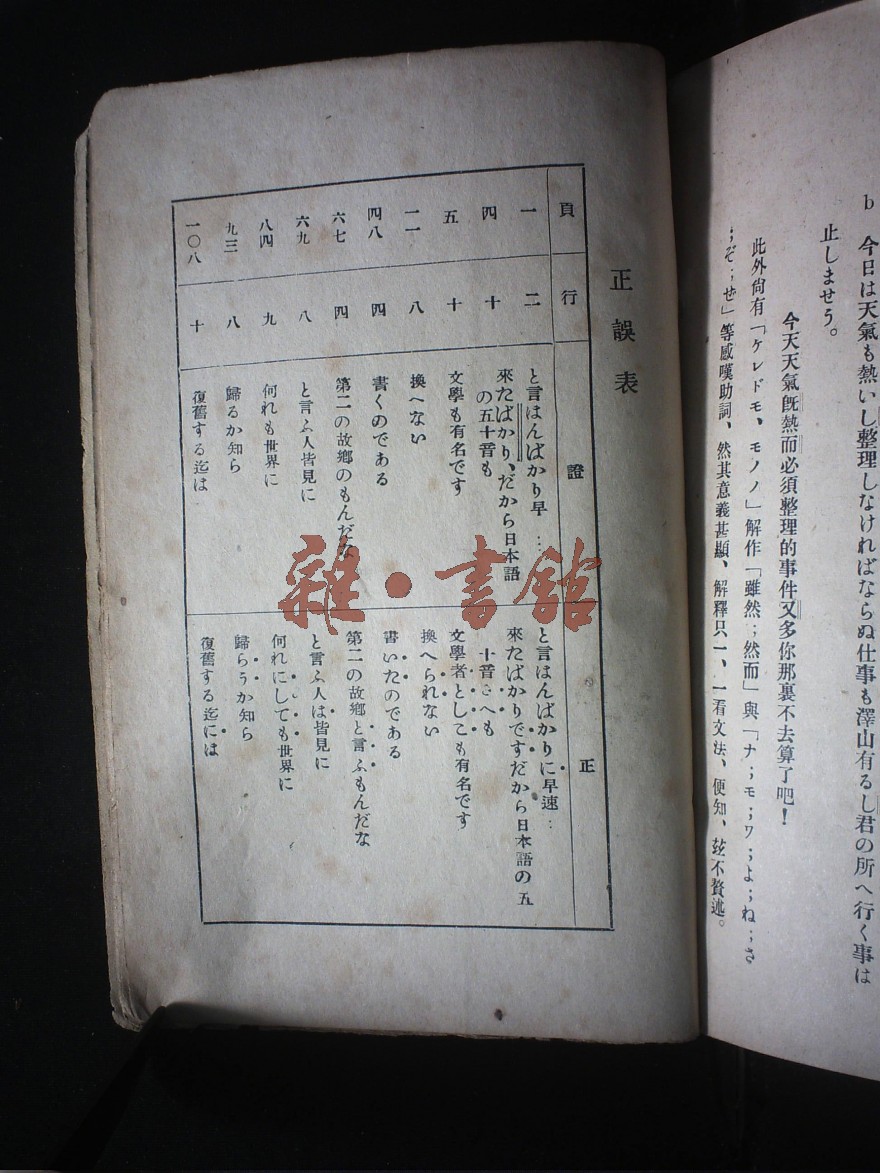 b 今日は天氣も熱いし整理しなければならぬ仕事も澤山有るし君の所へ行く事は
止しませう。
今天天氣旣熱而必須整理的事件又多你那裏不去算了吧！
此外尙有「ケレドモ、モノノ」解作「雖然；然而」與「ナ；モ；ワ；よ；ね；さ
；ぞ；ぜ」等感嘆助詞、然其意義甚顯、解釋只一、一看文法、便知、玆不贅述。
正誤表
頁 行 證 正
一 二 と言はんばかり早… と言はんばかりに早速…
四 十 來たばかり、だから日本語の五十音も 來たばかりですだから日本語の五十音さへも
五 十 文學も有名です 文學者としても有名です
一一 八 換へない 換へられない
四八 四 書くのである 書いたのである
六七 四 第二の故鄕のもんだな 第二の故鄕と言ふもんだな
六九 八 と言ふ人皆見に と言ふ人は皆見に
八四 九 何れも世界に 何れにしても世界に
九三 八 歸るか知ら 歸らうか知ら
一〇八 十 復舊する迄は 復舊する迄には
雜·書館